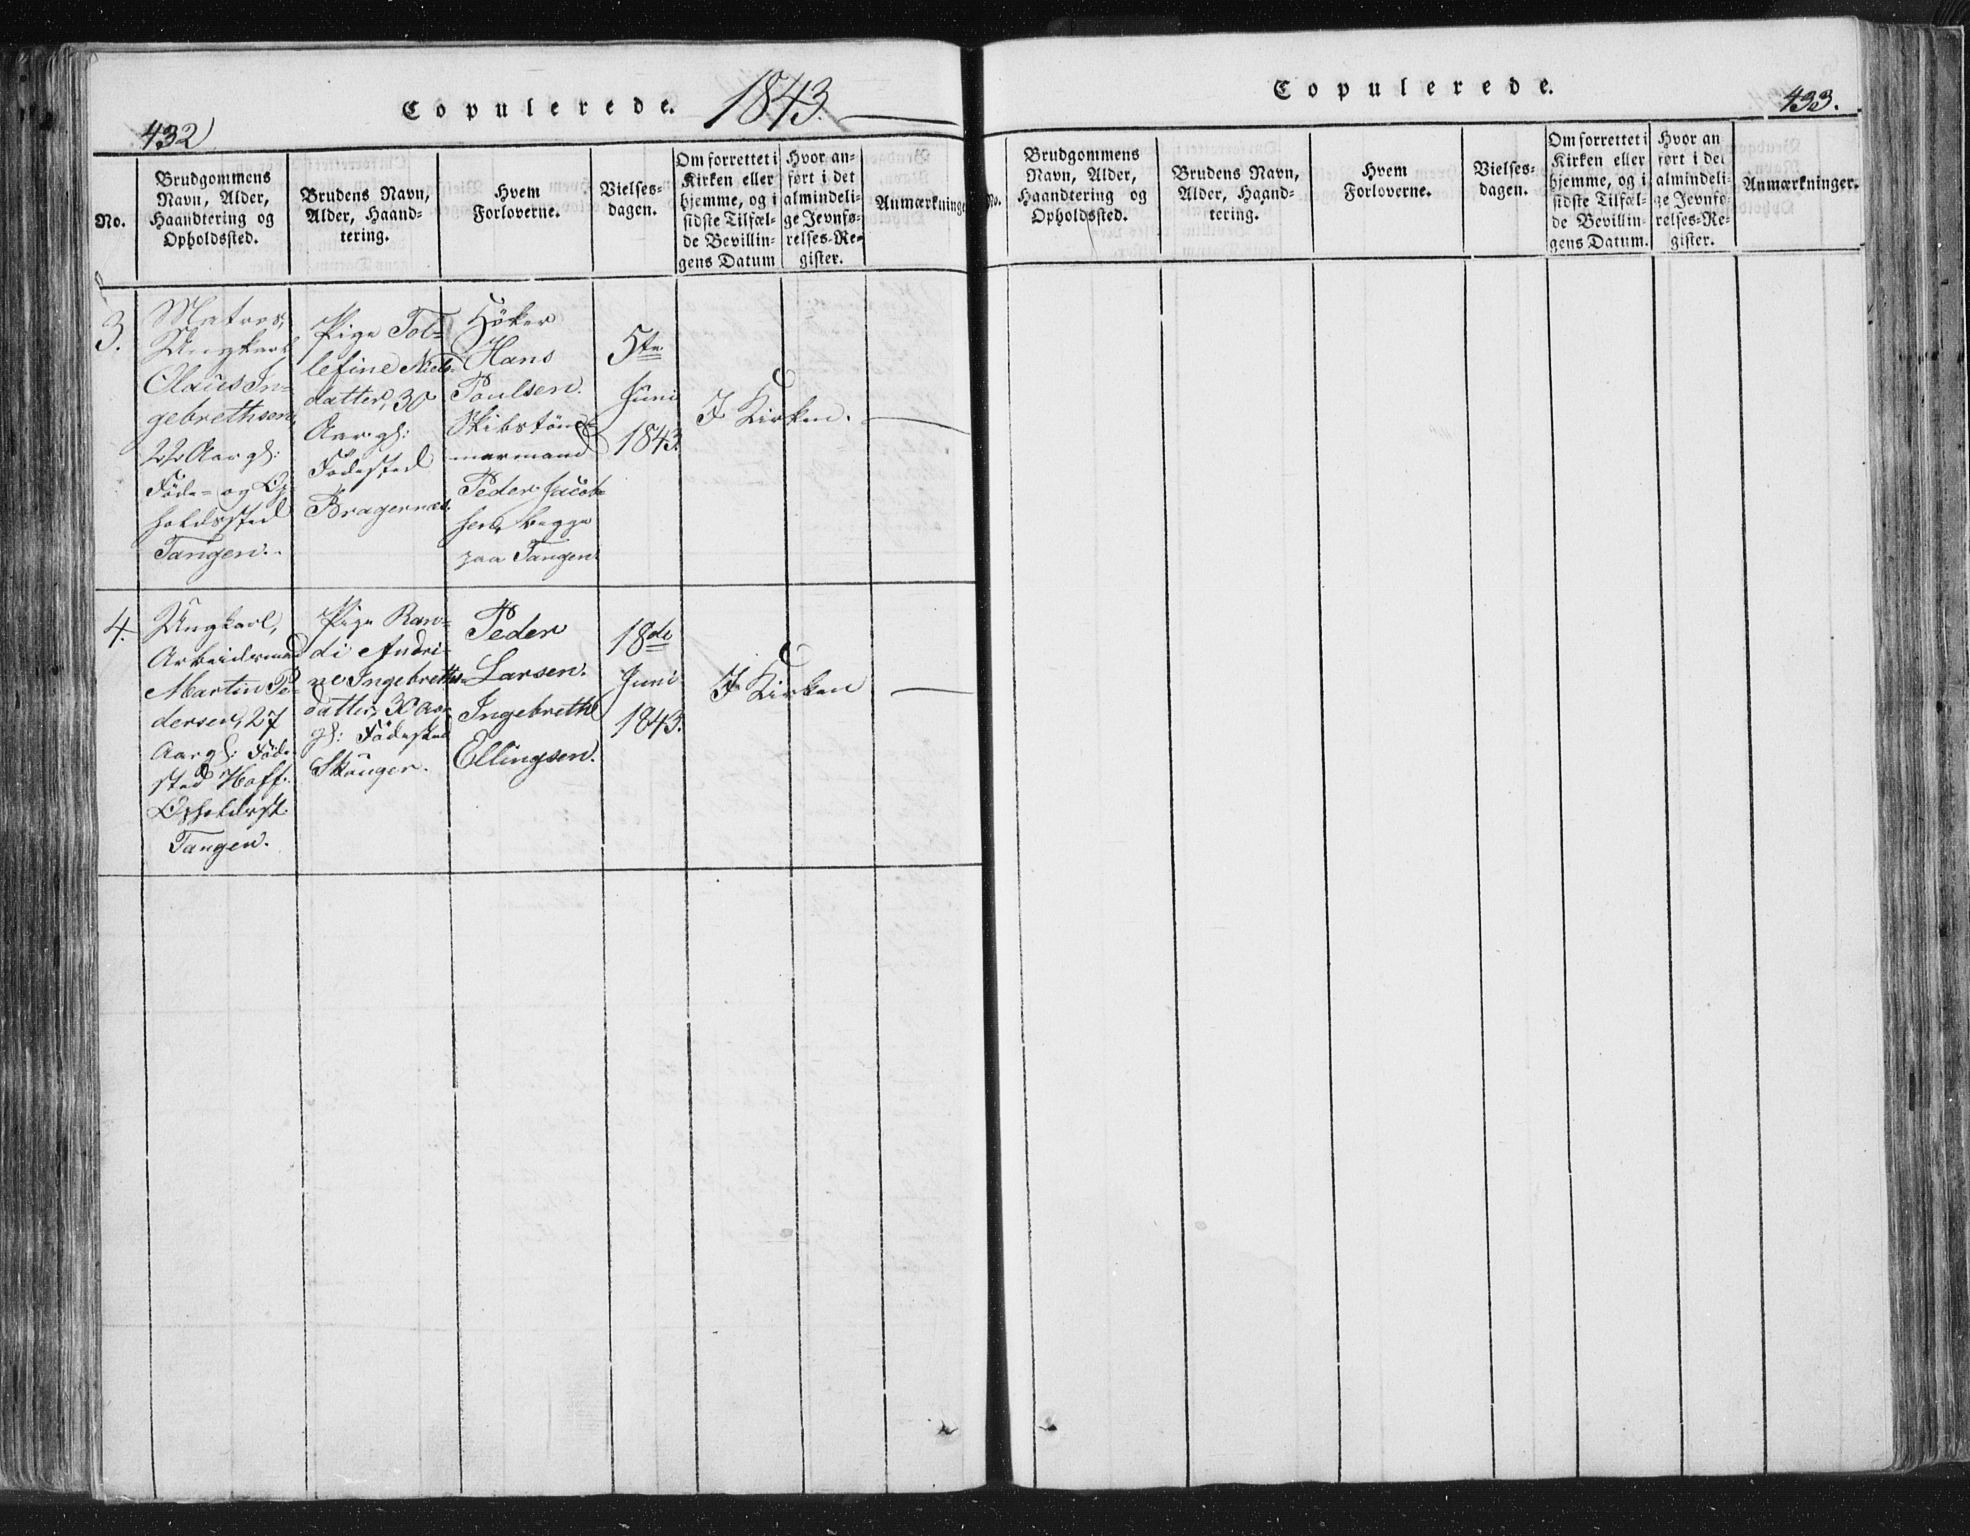 Copulerede. 1843.
432
No.
Brudgommens
Navn, Alder,
Haandtering og
Opholdssted.
Brudens Navn,
Alder, Haand-
tering.
Hvem
Forloverne.
Vielses-
dagen.
Om forrettet i
Kirken eller
hjemme, og i
sidste Tilfæl-
de Bevillin-
gens Datum
Hvor an-
ført i det
almindeli-
ge Jevnfø-
relses-Re-
gister.
Anmærkninge
3.
Matros,
Ungkarl
Olaus In-
gebrethsen,
22 Aar gl:
Føde- og Op
holdssted
Tangen.
Pige Tol-
lefine Niels-
datter, 30
Aar gl:
Fødested
Bragernæs.
Höker
Hans
Poulsen.
Skibstöm-
mermand
Peder Jacob-
sen, begge
paa Tangen.
5te
Juni
1843.
I Kirken.
4.
Ungkarl,
Arbeidsmand
Martin Pe-
dersen, 27
Aar gl: Føde-
sted Hoff.
Opholdsst.
Tangen.
Pige Ran-
di Andri-
ne Ingebreths-
datter, 30 Aar
gl: Fødested
Skouger.
Peder
Larsen.
Ingebreth
Ellingsen.
18de
Juni
1843.
I Kirken
Copulerede.
433.
No.
Brudgommens
Navn, Alder,
Haandtering og
Opholdssted.
Brudens Navn,
Alder, Haand-
tering.
Hvem
Forloverne.
Vielses-
dagen.
Om forrettet i
Kirken eller
hjemme, og i
sidste Tilfæl-
de Bevillin-
gens Datum.
Hvor an
ført i det
almindeli-
ge Jevnfø-
relses-Re-
gister.
Anmærkninger.